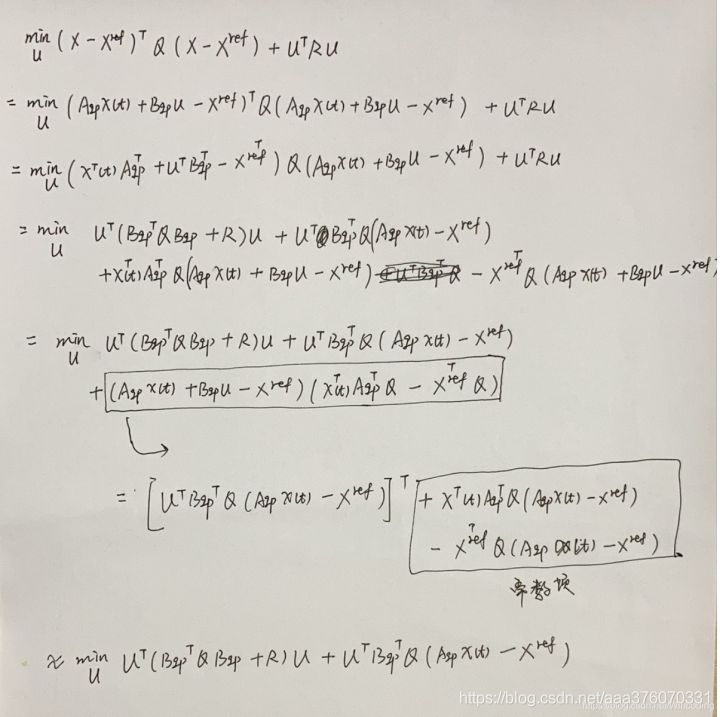 min_U (X - X^ref)^T Q (X - X^ref) + U^T R U
= min_U (A_qp X(t) + B_qp U - X^ref)^T Q (A_qp X(t) + B_qp U - X^ref) + U^T R U
= min_U (X^T(t) A_qp^T + U^T B_qp^T - X^ref^T) Q (A_qp X(t) + B_qp U - X^ref) + U^T R U
= min_U U^T (B_qp^T Q B_qp + R) U + U^T B_qp^T Q (A_qp X(t) - X^ref)
+ X^T(t) A_qp^T Q (A_qp X(t) + B_qp U - X^ref) - X^ref^T Q (A_qp X(t) + B_qp U - X^ref)
= min_U U^T (B_qp^T Q B_qp + R) U + U^T B_qp^T Q (A_qp X(t) - X^ref)
+ (A_qp X(t) + B_qp U - X^ref) (X^T(t) A_qp^T Q - X^ref^T Q)
= [U^T B_qp^T Q (A_qp X(t) - X^ref)]^T + X^T(t) A_qp^T Q (A_qp X(t) - X^ref)
- X^ref^T Q (A_qp X(t) - X^ref)
常数项
≈ min_U U^T (B_qp^T Q B_qp + R) U + U^T B_qp^T Q (A_qp X(t) - X^ref)
https://blog.csdn.net/aaa376070331